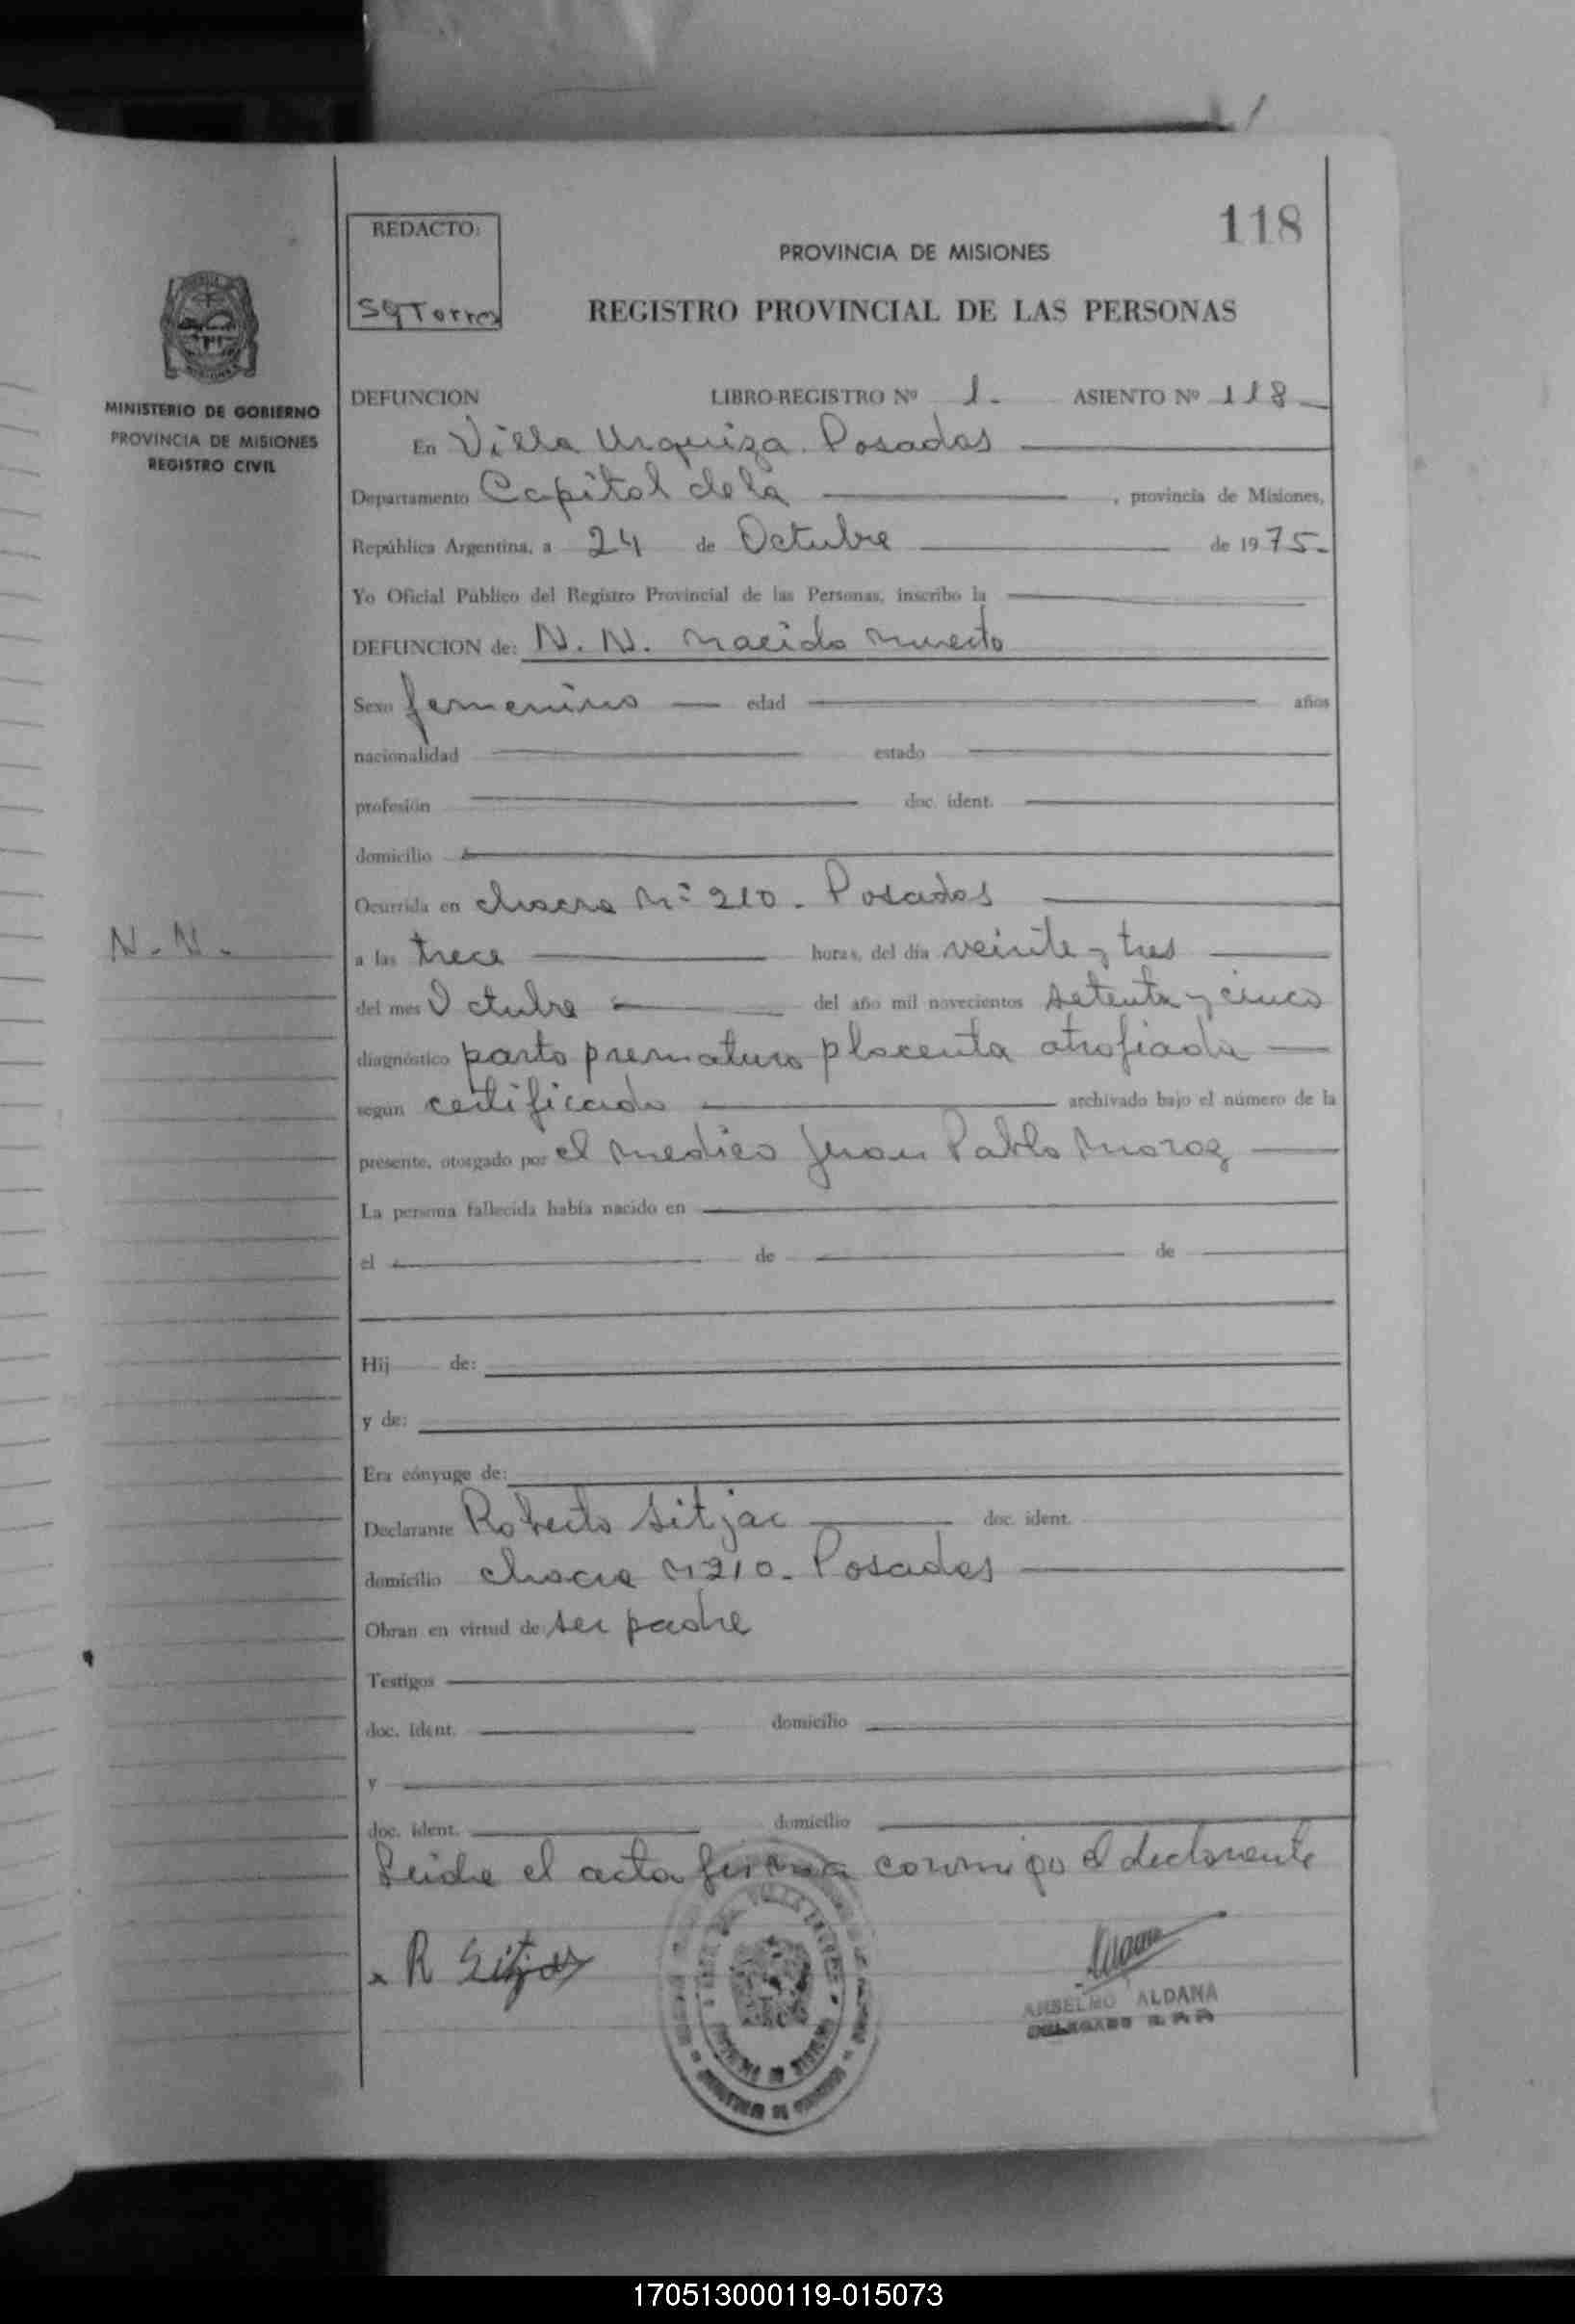 118
REDACTO:
SGTorres
PROVINCIA DE MISIONES
REGISTRO PROVINCIAL DE LAS PERSONAS
MINISTERIO DE GOBIERNO
PROVINCIA DE MISIONES
REGISTRO CIVIL
DEFUNCION LIBRO-REGISTRO Nº 1. ASIENTO Nº 118
En Villa Urquiza. Posadas
Departamento Capital de la , provincia de Misiones,
República Argentina, a 24 de Octubre de 1975.
Yo Oficial Público del Registro Provincial de las Personas, inscribo la
DEFUNCION de: N. N. nacido muerto
Sexo femenino edad años
nacionalidad estado
profesión doc. ident.
domicilio
Ocurrida en chacra Nº 210. Posadas
N. N.
a las trece horas, del día veinte y tres
del mes Octubre del año mil novecientos setenta y cinco
diagnóstico parto prematuro placenta atrofiada
según certificado archivado bajo el número de la
presente, otorgado por el medico Juan Pablo Moroz
La persona fallecida había nacido en
el de de
Hij de:
y de:
Era cónyuge de:
Declarante Roberto Sitjar doc. ident.
domicilio chacra N210. Posadas
Obran en virtud de ser padre
Testigos
doc. ident. domicilio
y
doc. ident. domicilio
Leida el acta firma conmigo el declarante
x R Sitjar
ANSELMO ALDANA
DELEGADO
170513000119-015073